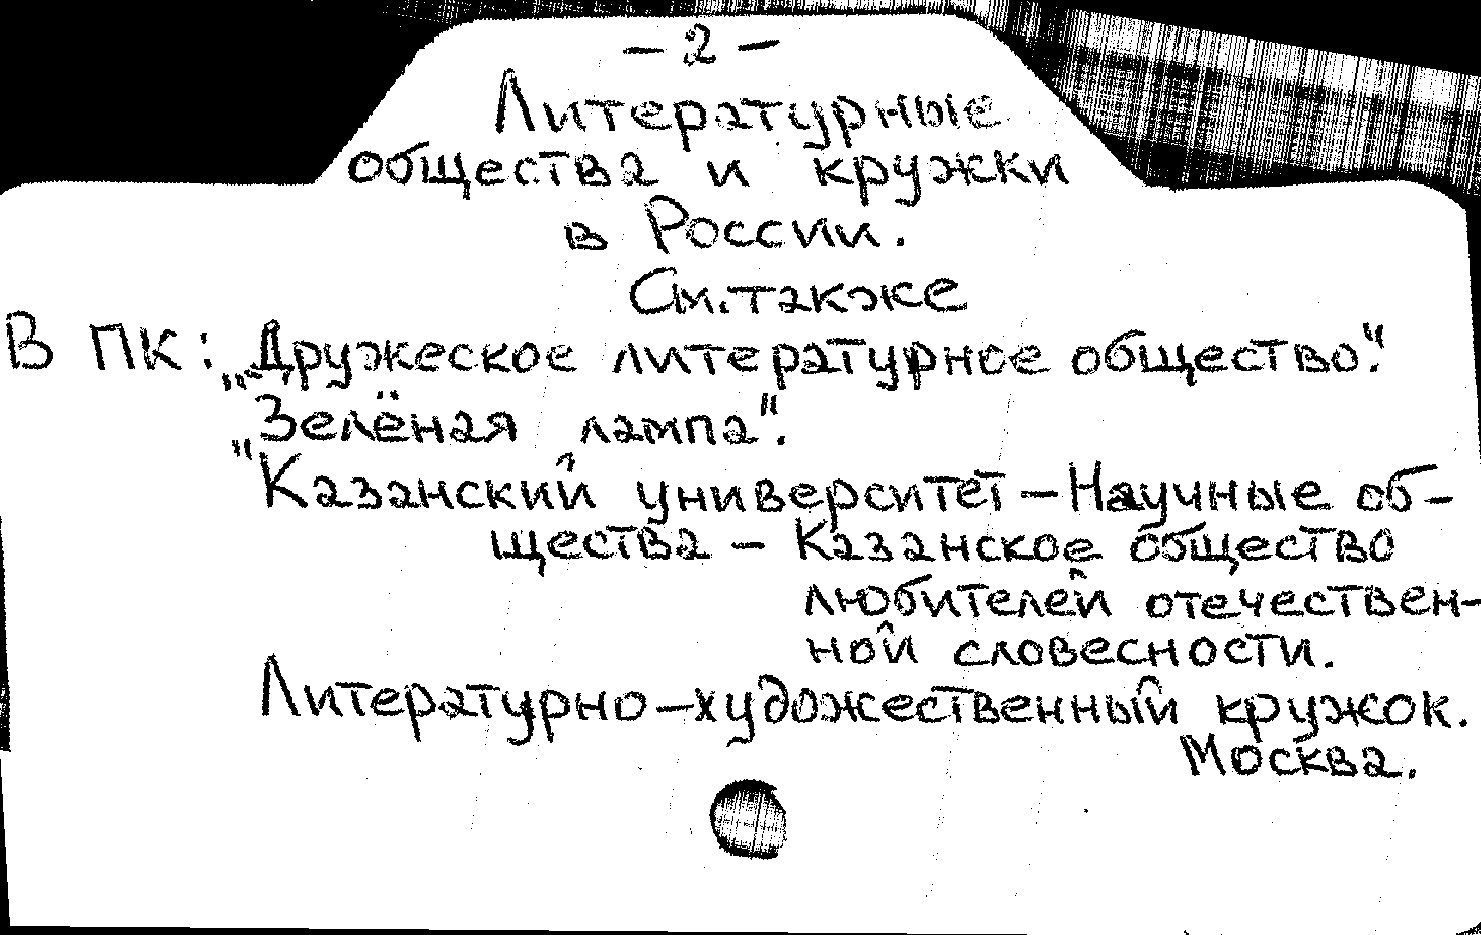 – 2 –
Литературные
общества и кружки
в России.
См. также
В ПК: „Дружеское литературное общество".
„Зелёная лампа".
Казанский университет – Научные об-
щества – Казанское общество
любителей отечествен-
ной словесности.
Литературно-художественный кружок.
Москва.